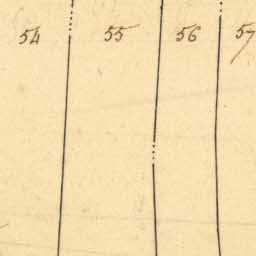 54 55 56 57